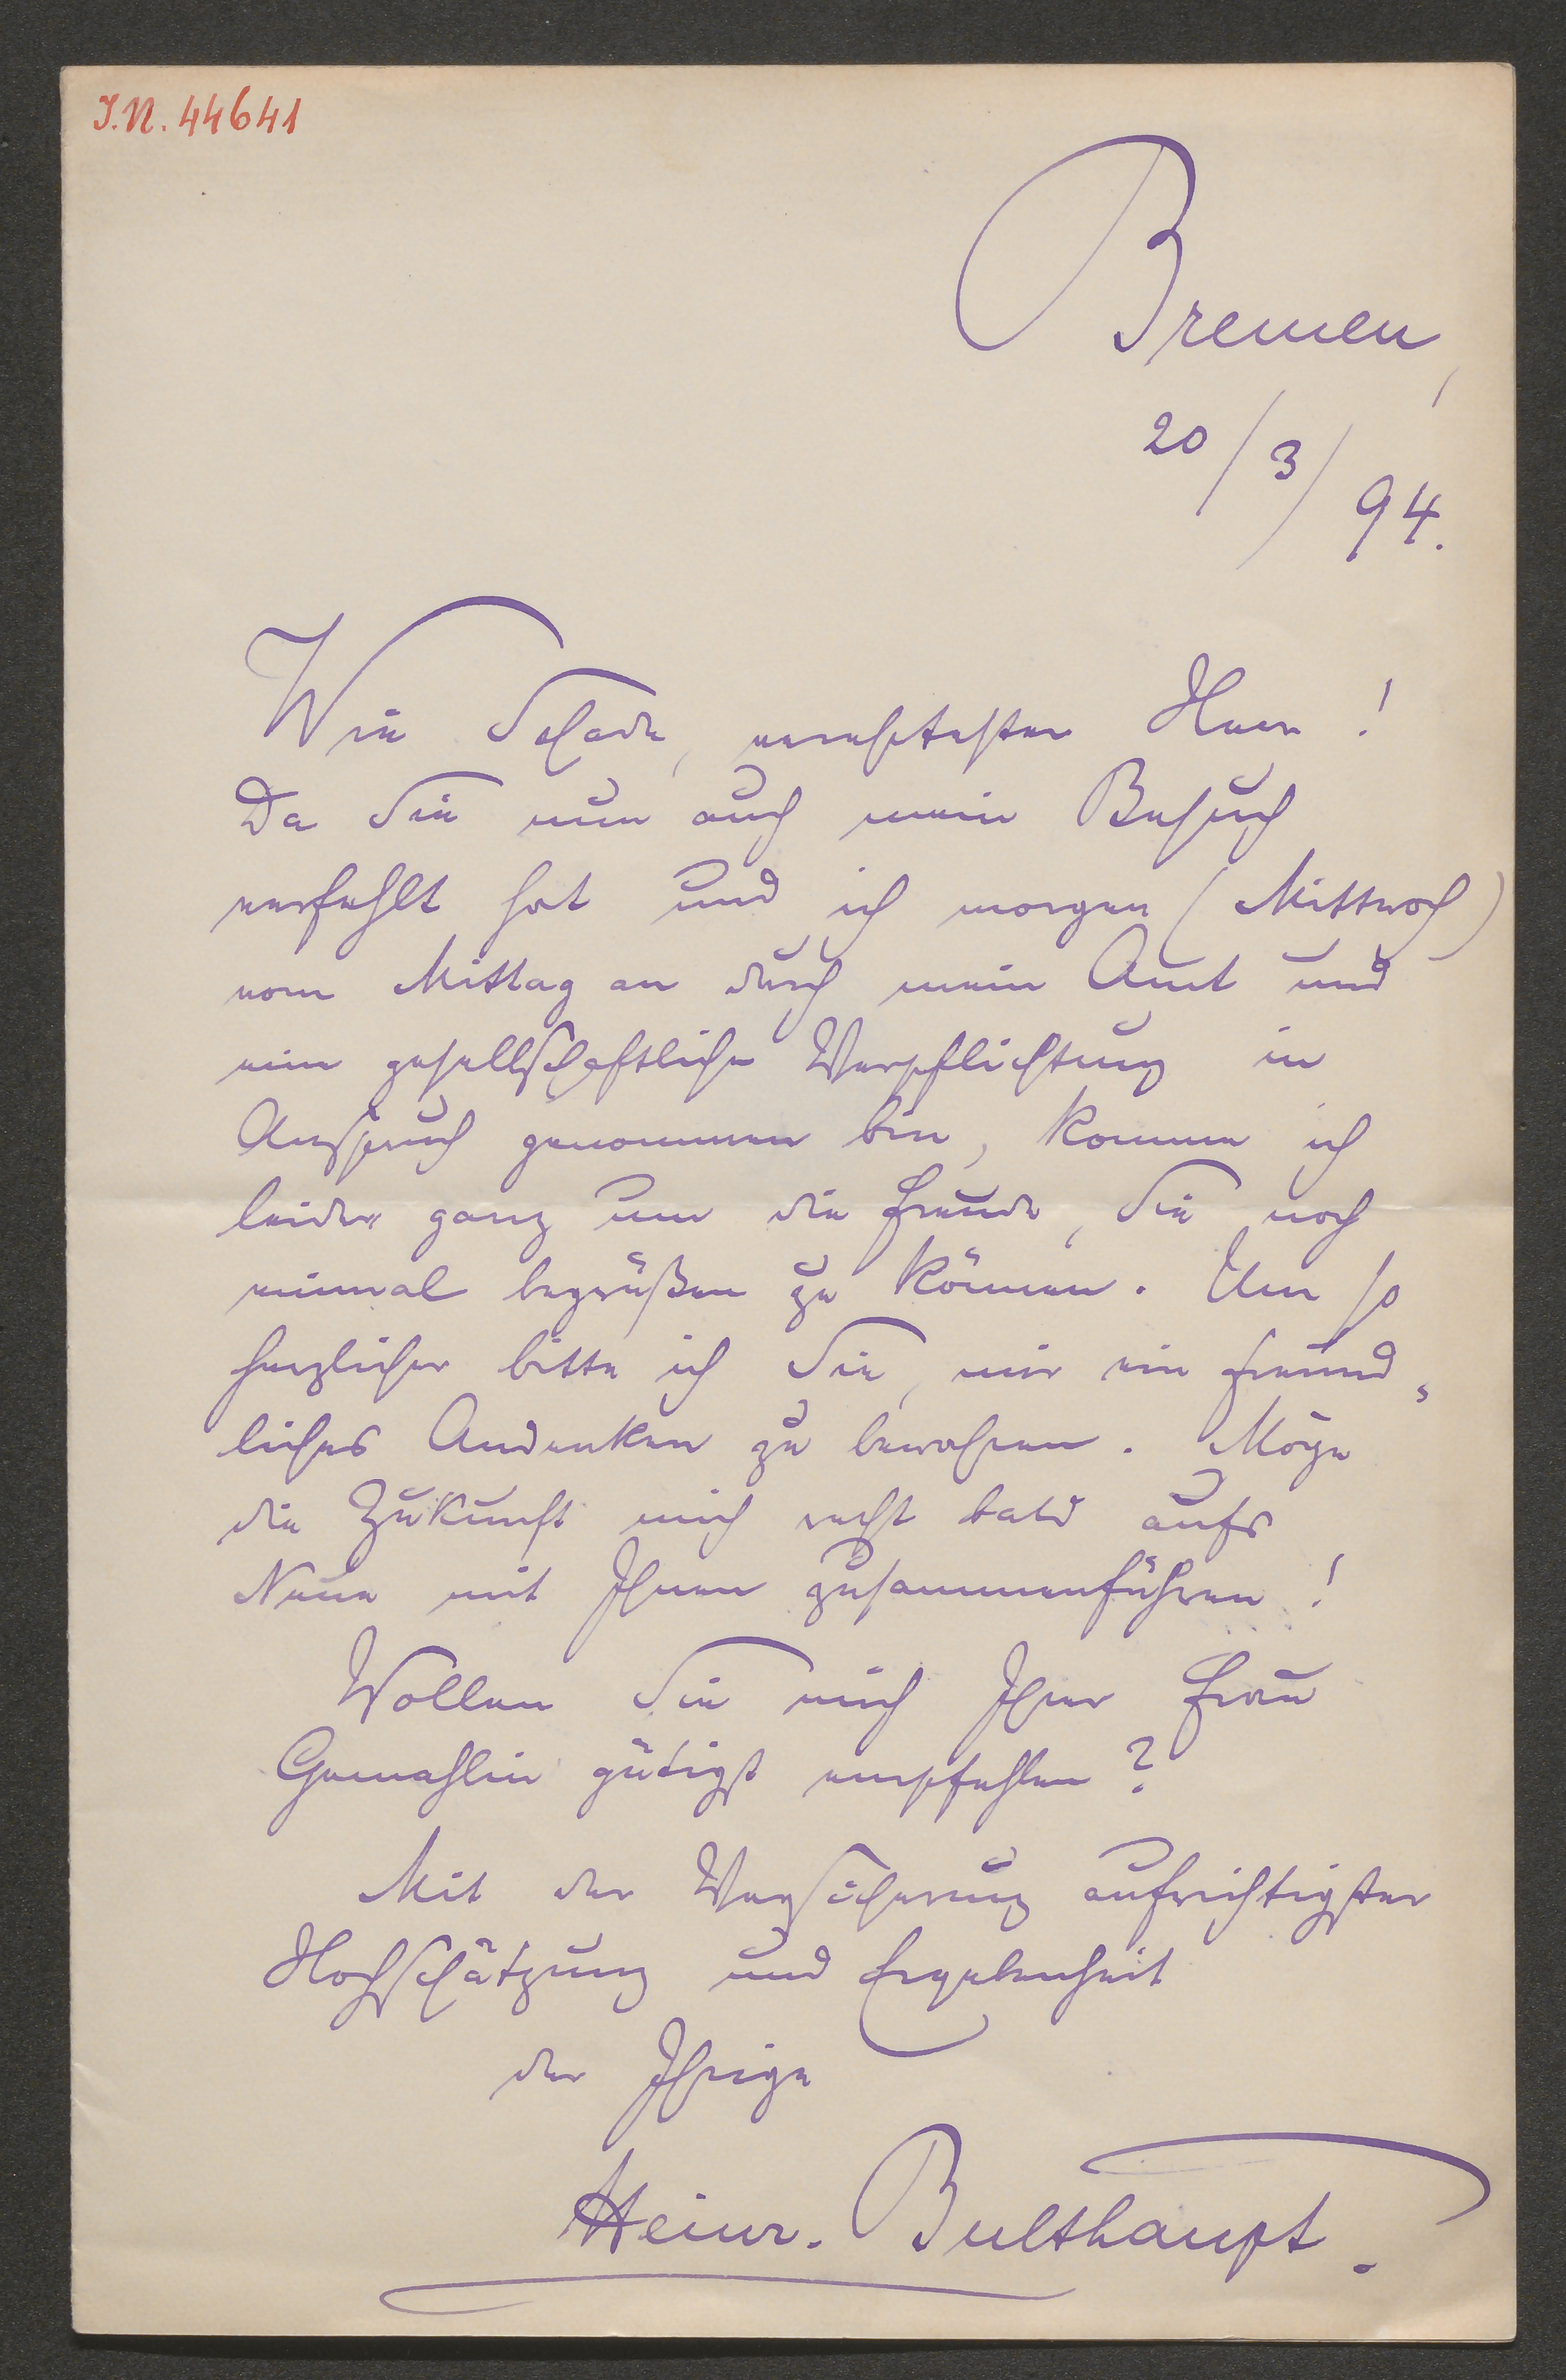 I.N. 44641
Bremen,
20/3/94.
Wie Schade, verehrtester Herr!
Da Sie nun auch mein Besuch
verfehlt hat und ich morgen (Mittwoch)
vom Mittag an durch mein Amt und
eine gesellschaftliche Verpflichtung in
Anspruch genommen bin, komme ich
leider ganz um die Freude, Sie noch
einmal begrüßen zu können. Um so
herzlicher bitte ich Sie, mir ein freund„
liches Andenken zu bewahren. Möge
die Zukunft mich recht bald aufs
Neue mit Ihnen zusammenführen!
Wollen Sie mich Ihrer Frau
Gemahlin gütigst empfehlen?
Mit der Versicherung aufrichtigster
Hochschätzung und Ergebenheit
der Ihrige
Heinr. Bulthaupt.